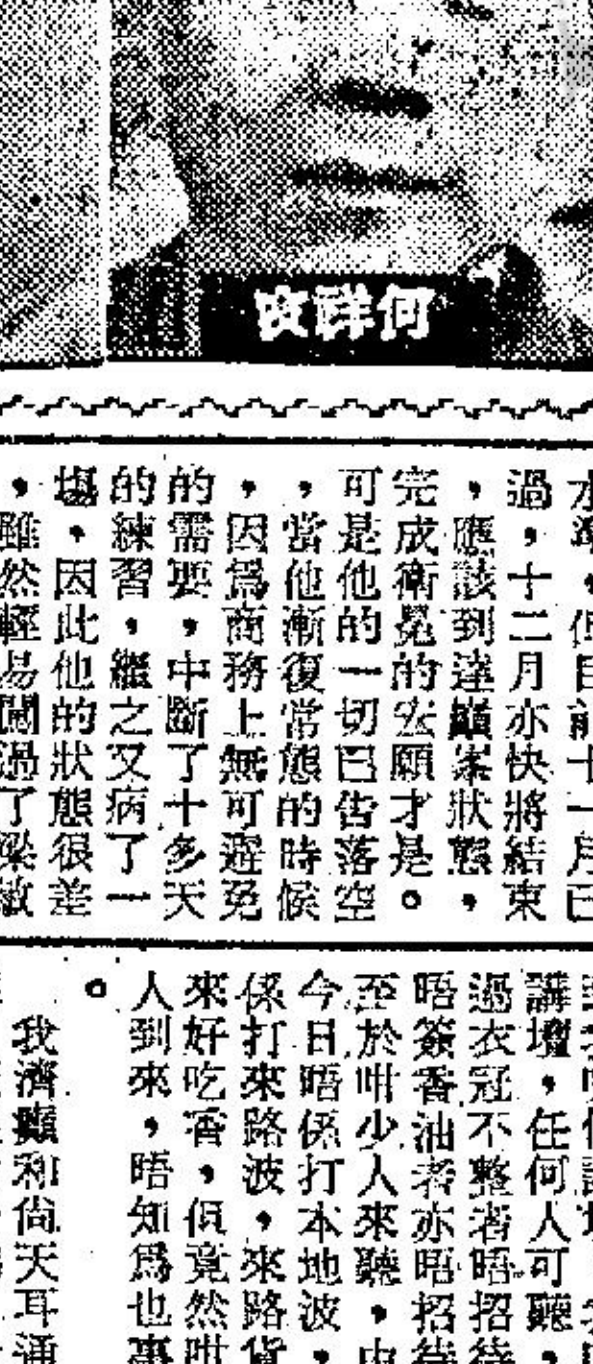 何祥攻
過，十二月亦快將結束
，應該到達巔峯狀態，
完成衛冕的宏願才是。
可是他的一切已告落空
，當他漸復常態的時候
，因爲商務上無可避免
的需要，中斷了十多天
的練習，繼之又病了一
塲，因此他的狀態很差
，雖然輕易闖過了梁
講壇，任何人可聽
過衣冠不整者唔招待
唔簽香油者亦唔招待
至於咁少人來聽，
今日唔係打本地波，
係打來路波，來路貨
來好吃香，但竟然咁
人到來，唔知爲也事
。
我濟顚和尙天耳通